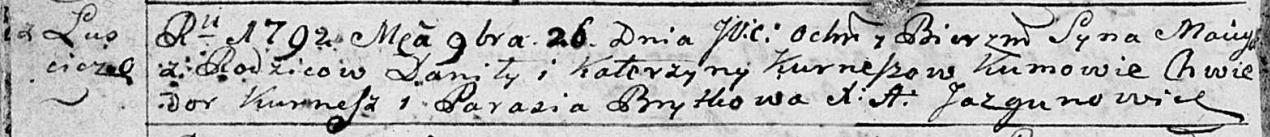 Łus Ru 1792 Mca 9bra. 26. Dnia JW.C: Ochrz y Bierzm Syna
ciczes z: Rodzicow Daniły i Katerzyny Kurneszow Kumowie Chwie
dor Kurnesz i Parasia Brytkowa X: A: Jazgunowicz